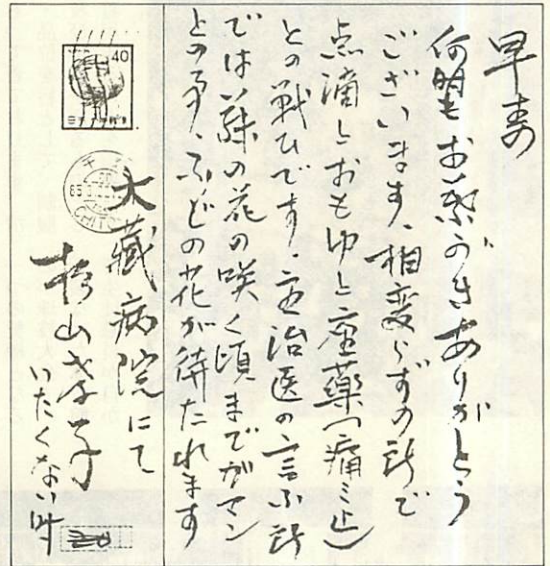 早春の
何時もお葉がきありがとう
ございます、相変らずの所で
点滴とおもゆと座薬(痛ミ止)
との戦ひです、主治医の言ふ所
では藤の花の咲く頃までガマン
との事、ふじの花が待たれます
大蔵病院にて
杉山孝子
いたくない時
40